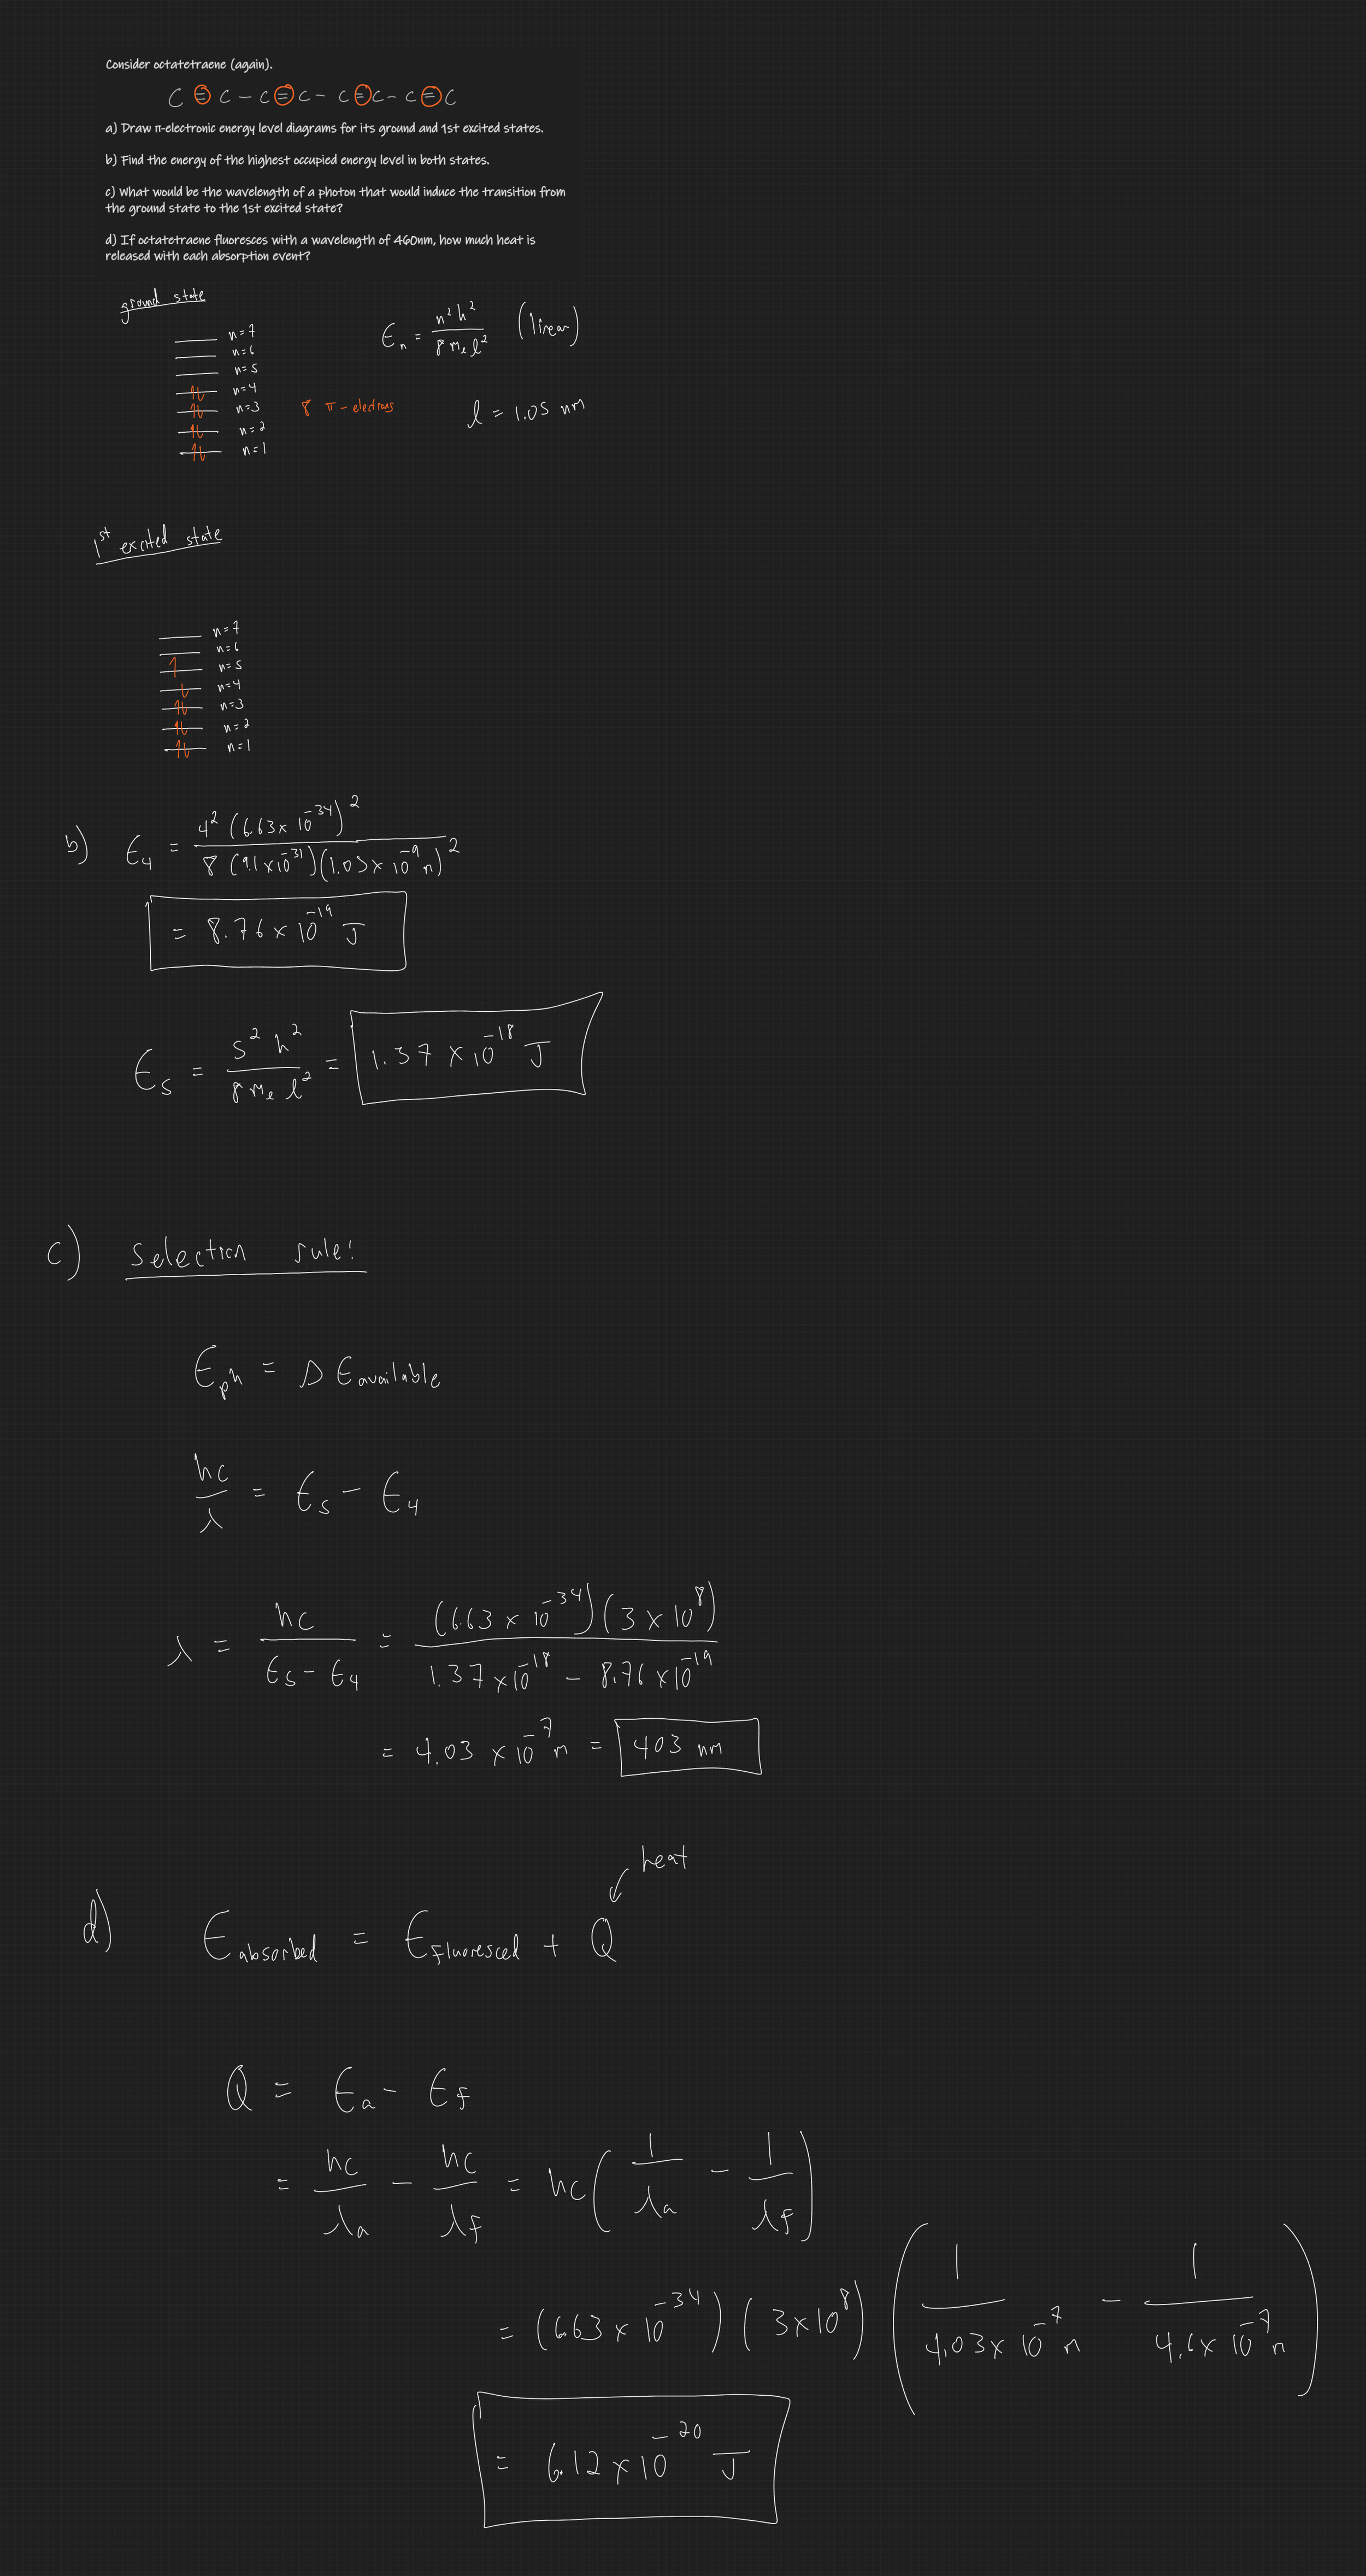 Consider octatetraene (again).
C = C - C = C - C = C - C = C
a) Draw π-electronic energy level diagrams for its ground and 1st excited states.
b) Find the energy of the highest occupied energy level in both states.
c) What would be the wavelength of a photon that would induce the transition from
the ground state to the 1st excited state?
d) If octatetraene fluoresces with a wavelength of 460nm, how much heat is
released with each absorption event?
ground state
n=7
n=6
n=5
n=4
n=3
n=2
n=1
8 π-electrons
E_n = n²h² / 8 m_e l² (linear)
l = 1.05 nm
1st excited state
n=7
n=6
n=5
n=4
n=3
n=2
n=1
b) E_4 = 4² (6.63 × 10^-34)² / 8 (9.1 × 10^-31)(1.05 × 10^-9 m)²
= 8.76 × 10^-19 J
E_5 = 5² h² / 8 m_e l² = 1.37 × 10^-18 J
c) Selection rule:
E_ph = Δ E_available
hc / λ = E_5 - E_4
λ = hc / E_5 - E_4 = (6.63 × 10^-34)(3 × 10^8) / 1.37 × 10^-18 - 8.76 × 10^-19
= 4.03 × 10^-7 m = 403 nm
heat
d) E_absorbed = E_fluoresced + Q
Q = E_a - E_f
= hc / λ_a - hc / λ_f = hc ( 1 / λ_a - 1 / λ_f )
= (6.63 × 10^-34) (3 × 10^8) ( 1 / 4.03 × 10^-7 m - 1 / 4.6 × 10^-7 m )
= 6.12 × 10^-20 J